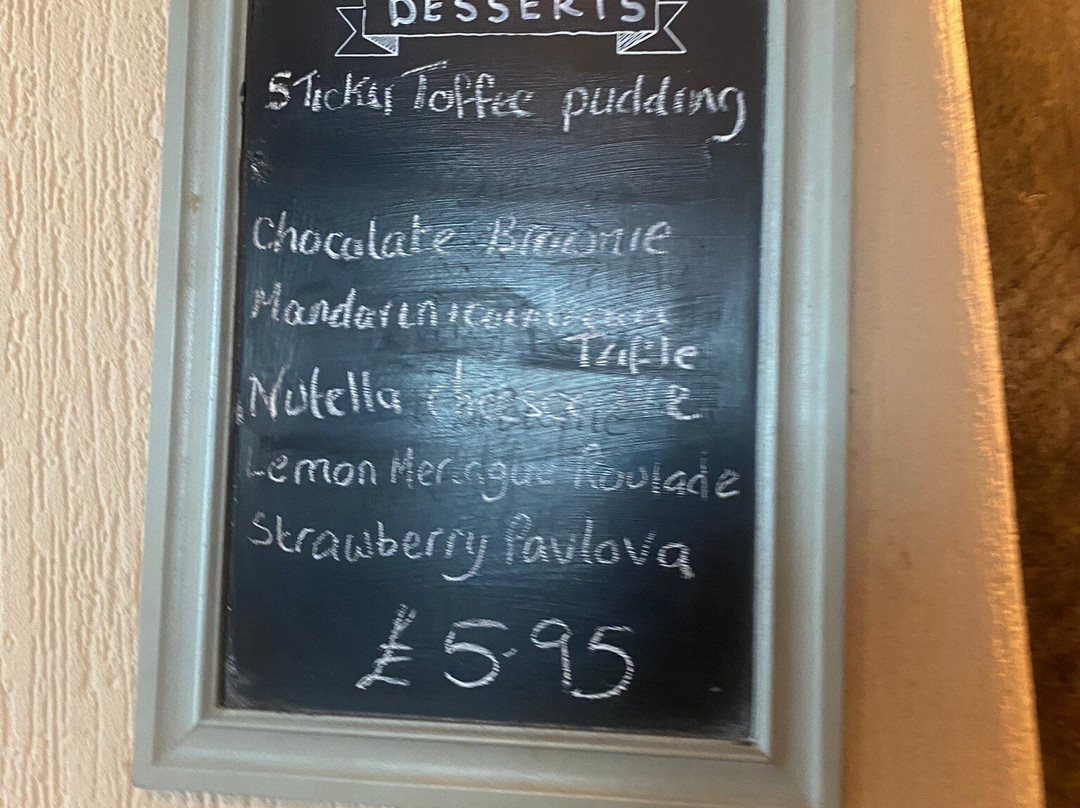 DESSERTS
Sticky Toffee pudding
Chocolate Brownie
Mandarin
Trifle
Nutella
Lemon Meringue Roulade
Strawberry Pavlova
£5.95